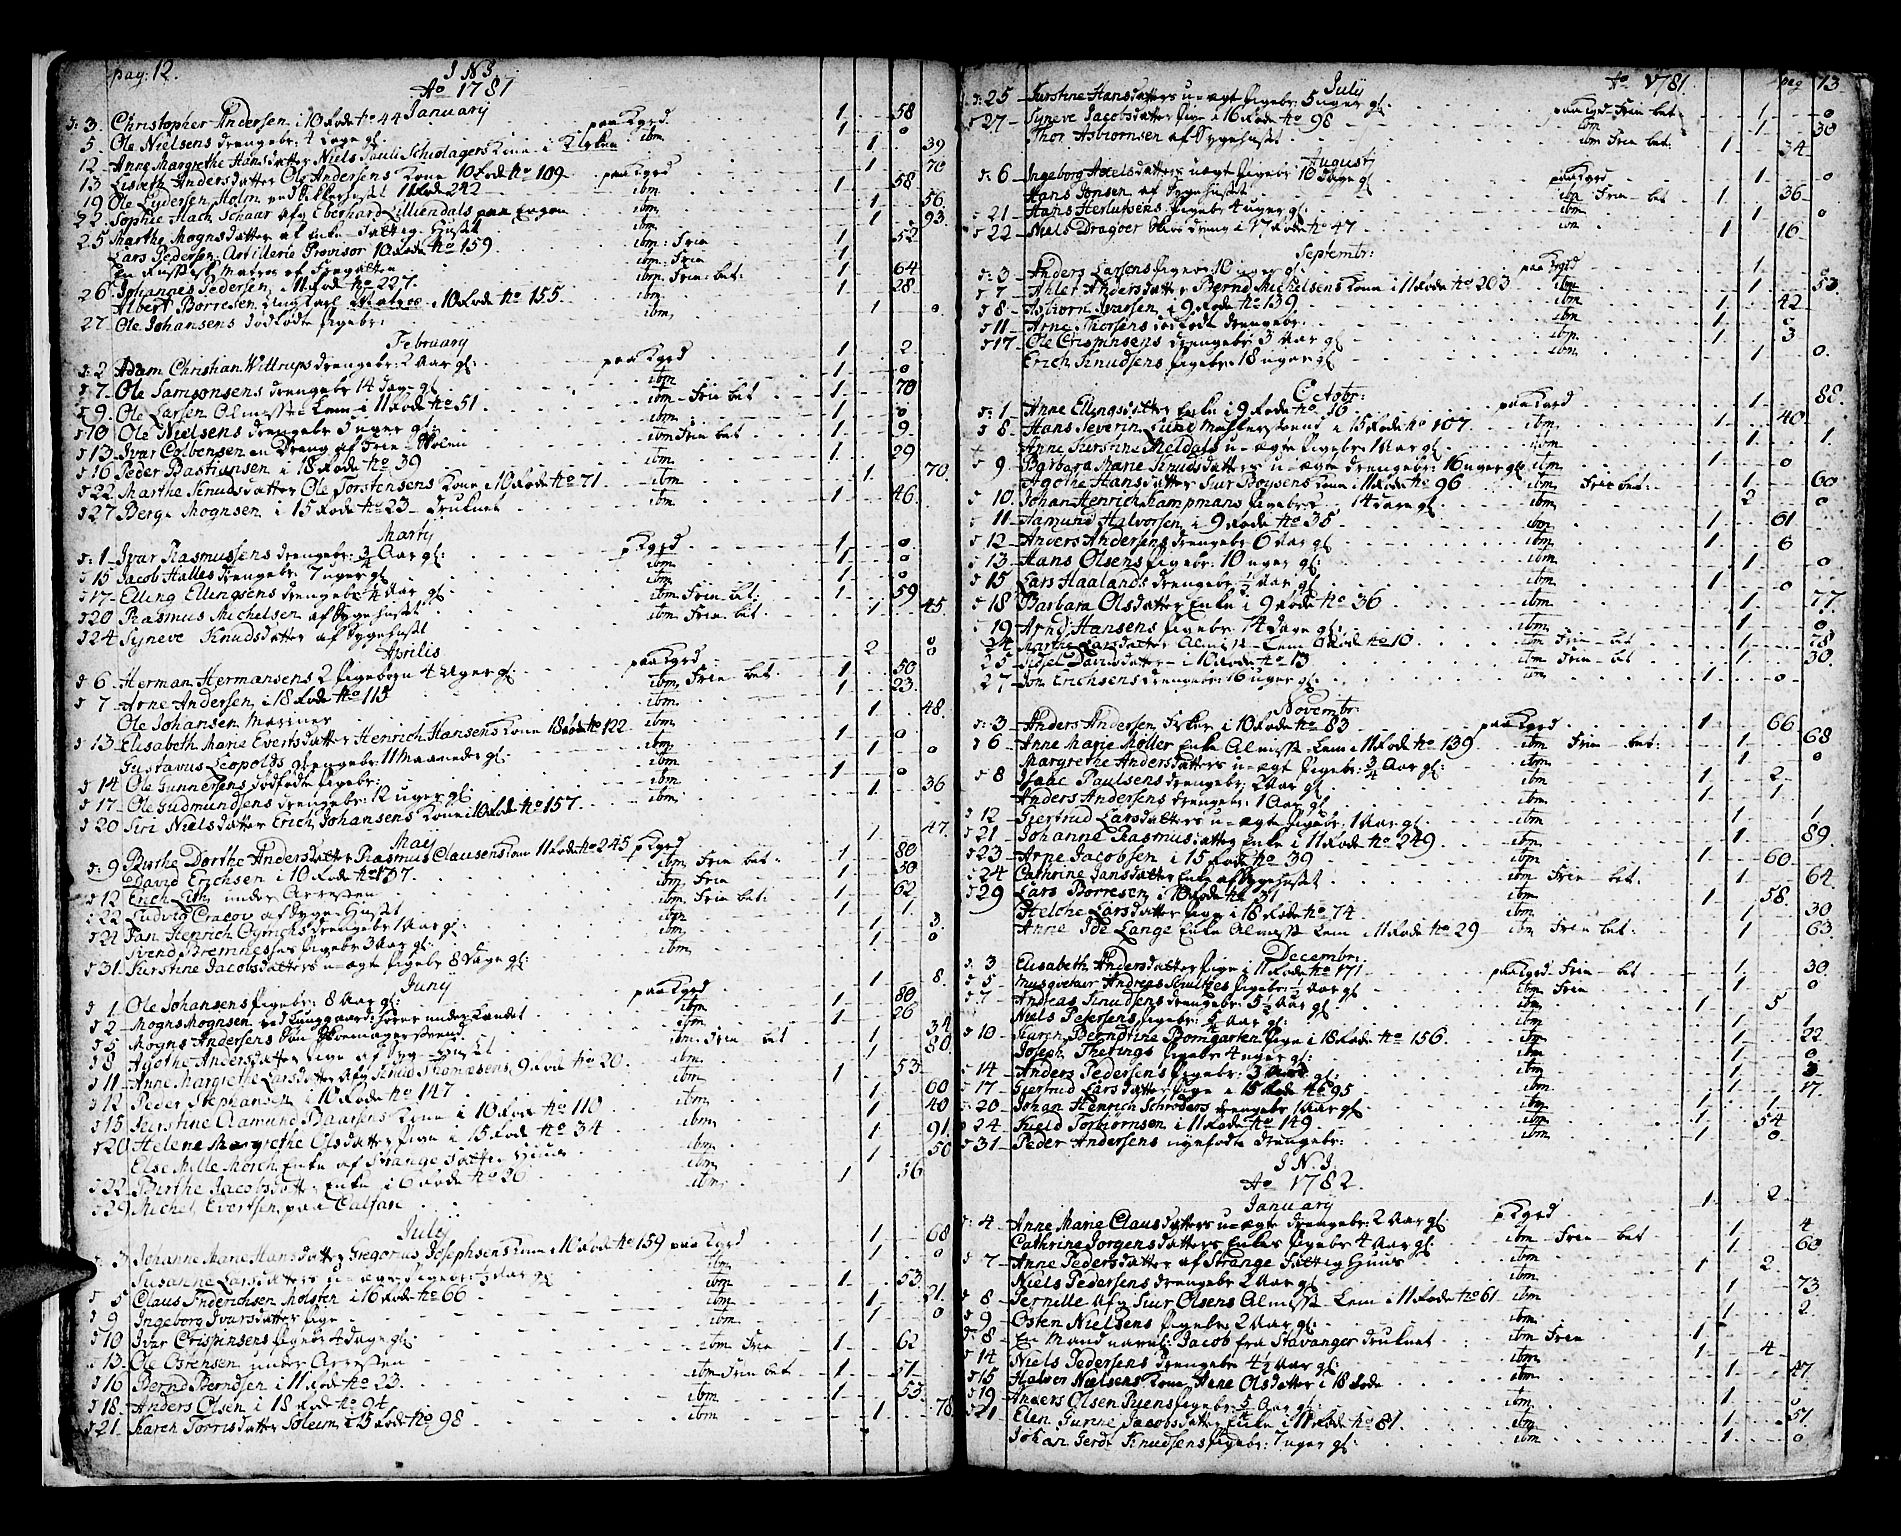 pag: 12.
I N I
Ao 1781
January
d: 3. Christopher Andersen i 10 Rode No 44 paa Kgrd. 1 58
5 Ole Nielsens drengebr: 4 dage gl. ibm 1 0
12 Anne Margrethe Hansdatter Niels Pauli Schiolagers Kone i Kirken 1 39
13 Lisbeth Andersdatter Ole Andersens Kone 10 Rode No 109 paa Kgrd 1 70
19 Ole Eydersen Holm ved Sukkerhuset 11 Rode 242 ibm 1 58
22 Sophie Hach Schaar afg Eberhard Lilliendals paa Engen ibm 1 56
25 Marthe Mognsdatter af Enke Fattig Huset ibm 1 93
Lars Pedersen Artillerie Provisor 10 Rode No 159 ibm 1 52
En Russisk Matros af Fregatten ibm: Frie
26 Johannes Pedersen 11 Rode No 227. ibm: Frie: bet: 1 64
Albert Børresen Matros i 10 Rode No 155 ibm 1 28
27 Ole Johansens dødfødte Pigebr: ibm 1 0
February
d: 2 Adam Christian Wiltrups drengebr: 2 Aar gl: paa Kgrd 1 2
d 7 Ole Samsonsens drengebr 14 dage gl ibm 1 0
d 9 Ole Larsen Almisse Lem i 11 Rode No 51 ibm Frie bet 1 70
d 10 Ole Nielsens drengebr 3 uger gl: ibm 1 0
d 13 Ivar Colbensen en Dreng af Frie Skolen ibm Frie bet 1 9
d 16 Peder Bastiansen i 18 Rode No 39 ibm 1 29
d 22 Marthe Knudsdatter Ole Torstensens Kone i 10 Rode No 71 ibm 1 70
d 27 Berge Mognsen i 15 Rode No 23 druknet ibm 1 46
Martij
d: 1 Ivar Rasmussens drengebr: 3/4 Aar gl: pKgrd 1 0
d 15 Jacob Halles drengebr 7 uger gl ibm 1 0
d 17 Elling Ellingsens drengebr 4 Aar gl: ibm 1 0
d 20 Rasmus Michelsen af Sygehuset ibm Frie bet: 1 59
d 24 Syneve Knudsdatter af Sygehuset ibm Frie bet 1 45
Aprilis
d 6 Herman Hermansens 2 Pigebørn 4 Uger gl: paa Kgrd 2 0
d 7 Arne Andersen i 18 Rode No 115 ibm Frie bet 1 50
Ole Johansen Mariner ibm 1 23
d 13 Elisabeth Marie Evertsdatter Henrich Hansens Kone 18 Rode No 122 ibm 1 48
Gustavus Leopolds drengebr: 11 Maaneder gl: ibm 1 0
d 14 Ole Gunnersens dødfødte Pigebr: ibm 1 0
d 17 Ole Gudmundsens drengebr: 12 uger gl ibm 1 0
d 20 Siri Nielsdatter Erich Johansens Kone i 10 Rode No 157. ibm 1 36
Maij
d: 9 Birthe Dorthe Andersdatter Rasmus Clausens Kone 11 Rode No 245 pKgrd 1 47
David Erichsen i 10 Rode No 137. ibm Frie bet: 1 80
d 12 Erich Lith under Arresten ibm Frie 1 50
d 22 Ludvig Cracov af Syge Huset ibm Frie bet: 1 62
d 24 Jan Henrich Oyrichs drengebr 1 Aar gl: ibm 1 1
Svend Bremnesses Pigebr 3 Aar gl: ibm 1 3
d 31 Kirstine Jacobsdatters u-ægt Pigebr 8 dage gl: ibm 1 0
Junij
d 1 Ole Johansens Pigebr: 8 Aar gl: paa Kgrd 1 8
d 2 Mogns Mognsen ved Lunggaards ibm 1 80
d 5 Mogns Andersens Søn Skomagersvend ibm 1 26
d 8 Agothe Andersdatter Pige af Syge Huset ibm: Frie bet 1 34
d 11 Anne Margrethe Larsdatter Afg Knud Thomæsens, 9 Rode No 20. ibm 1 80
d 12 Peder Stephansen i 10 Rode No 147 ibm 1 53
d 15 Kirstine Aamund Baarsens Kone i 10 Rode No 110 ibm 1 60
d 20 Helene Margrethe Olsdatter Pige i 15 Rode No 34 ibm 1 40
Else Mille Mørch Enke af Strange Fattig Huus ibm 1 91
d 22 Birthe Jacobsdatter Enke i 6 Rode No 26 ibm 1 50
d 29 Michel Evertsen paa Calfan ibm 1 56
July
d 3 Johanne Marie Hansdatter Gregorius Josephsens Kone i 10 Rode No 159 paa Kgrd 1 68
Susanne Larsdatters u-ægte Pigebr: 1/2 Aar gl ibm 1 0
d 5 Claus Friderichsen Molsten i 16 Rode No 66 ibm 1 53
d 9 Ingeborg Ivarsdatter Pige ibm 1 21
d 10 Ivar Crispensens Pigebr 4 dage gl: ibm 1 0
d 13 Ole Ostensen under Arresten ibm Frie 1 62
d 16 Bernd Berndsen i 11 Rode No 23. ibm Frie bet 1 51
d 18. Anders Olsen i 18 Rode No 94 ibm 1 53
d 21. Karen Torrisdatter Soleim i 15 Rode No 98 ibm 1 78
July Ao 1781 pag 13
d: 25 Kirstine Hansdatters u-ægt Pigebr. 5 uger gl: paa Kgrd Frie bet: 1 0
d 27 Syneve Jacobsdatter Pige i 16 Rode No 98 ibm 1 30
Thor Asbiornsen af Sygehuset ibm Frie bet: 1 34
Augustj
d: 6 Ingeborg Axelsdatters uægt Pigebr 10 dage gl paa Kgrd 1 0
Hans Jonsen af Sygehuset ibm Frie bet 1 36
d 21 Hans Herlufsens Pigebr 4 uger gl: ibm 1 0
d 22 Niels Dragoer Skoe dreng i 17 Rode No 47 ibm 1 16
Septembr:
d: 3 Anders Larsens Pigebr 10 uger gl paa Kgrd 1
d 7 Ahlet Andersdatter Bernd Michelsens Kone i 11 Rode No 203 ibm 1 53
d 8 Asbiorn Iversen i 9 Rode No 139 ibm 1 42
d 11 Arne Thorsens dødfødt drengebr. ibm 1 0
d 17 Ole Crispinsens drengebr 3 Aar gl ibm 1 3
Erich Knudsens Pigebr 18 uger gl ibm 1 0.
Octobr:
d: 1 Anne Ellingsdatter Enke i 9 Rode No 16 paa Kgrd 1 88
d 8 Hans Severin Lund i 15 Rode No 107. ibm 1 40
Anne Kirstine Meldals u-ægte Pigebr 1 Aar gl ibm 1 1.
d 9 Barbara Marie Knudsdatters u-ægte drengebr: 16 uger gl ibm 1 0
Agothe Hansdatter Siur Roysens Kone i 11 Rode No 96 ibm Frie bet: 1 60
d 10 Johan Henrich Kampmans Pigebr 14 dage gl ibm 2 0
d 11 Aamund Halvorsen i 9 Rode No 35 ibm 1 61
d 12 Anders Andersens drengebr 6 Aar gl ibm 1 6
d 13 Hans Olsens Pigebr: 10 uger gl: ibm 1 0
d 15 Lars Haalands drengebr 1/2 Aar gl ibm 1 0
d 18 Barbara Olsdatter Enke i 9 Rode No 36 ibm 1 77.
d 19 Arnd Hansens Pigebr: 4 dage gl: ibm 1 0
24 Marthe Larsdatter Almisse Lem 6 Rode No 10 ibm Frie bet 1 78
25 Sidsel Davidsdatter i 10 Rode No 13 ibm Frie bet 1 30.
27 Jon Erichsens drengebr: 16 uger gl: ibm 1 0
Novembr:
d: 3 Anders Andersen Fisker i 10 Rode No 83 paa Kgrd 1 66
d 6 Anne Marie Møller Enke Almisse Lem i 11 Rode No 139 ibm Frie bet: 1 68
Margrethe Andersdatters u-ægt Pigebr 3/4 Aar gl: ibm 1 0
d 8 Isaac Paulsens drengebr: 2 Aar gl ibm 1 2
Anders Andersens drengebr: 1 Aar gl ibm 1 1
d 12 Giertrud Larsdatters u-ægt Pigebr: 1 Aar gl ibm 1 1.
d 21 Johanne Rasmusdatter Enke i 11 Rode No 249 ibm 1 89.
d 23 Arne Jacobsen i 15 Rode No 39 ibm 1 60
d 24 Cathrine Jansdatter Enke af Sygehuset ibm Frie bet: 1 64.
d 29 Lars Børresen i 10 Rode No 131 ibm 1 58.
Helche Larsdatter Pige i 18 Rode No 74 ibm 1 30
Anne Ide Lange Enke Almisse Lem i 11 Rode No 29 ibm Frie bet: 1 63.
Decembr:
d. 3 Elisabeth Andersdatter Pige i 11 Rode No 171 paa Kgrd Frie bet 1 30.
d 5 Musqveteer Andreas Schultzes Pigebr 1/2 Aar gl ibm Frie 1 0
d 7 Andreas Knudsens drengebr: 5 1/2 Aar gl ibm 1 5
Niels Petersens Pigebr: 5/4 Aar gl: ibm 1 1
d 10 Karen Berndtine Blomgarten Pige i 18 Rode No 156 ibm 1 22
Joseph Therings Pigebr 4 uger gl: ibm 1 0
d 14 Anders Pedersens Pigebr: 3 Aar gl: ibm 1 3
d 17 Giertrud Larsdatter Pige i 15 Rode No 95 ibm 1 17.
d: 20 Johan Henrich Schrøders drengebr 1 Aar gl ibm 1 1
d 24 Kield Torbiornsen i 11 Rode No 149. ibm 1 54
d 31 Peder Andersens nyefødte drengebr: ibm 1 0
I. N. I.
Ao 1782.
January
d: 4. Anne Marie Clausdatters u-ægte drengebr: 2 Aar gl pKgrd 1 2
Cathrine Jørgensdatters Enkes Pigebr 4 Aar gl: ibm Frie bet 1 4
d 7 Anne Pedersdatter af Strange Fattig Huus ibm 1 60
Niels Pedersens drengebr 2 Aar gl ibm 1 2
d 8 Pernille Afg Siur Olsens Almisse Lem i 11 Rode No 61 ibm 1 73
d 9 Osten Nielsens Pigebr 2 Aar gl: ibm 1 2.
d 8 En Mand navnl: Jacob fra Stavanger druknet ibm Frie 1
d 14 Niels Pedersens drengebr 4 1/2 Aar gl: ibm 1 4
d 15 Halvor Nielsens Kone Anne Olsdatter i 18 Rode ibm 1 47
d 19 Anders Olsen Pigebr: 5/4 Aar gl: ibm 1 0
d 21 Elen Gunne Jacobsdatter Enke i 11 Rode No 81. ibm 1 51
Johan Gerdt Knudsens Pigebr: 7 uger gl: ibm 1 0